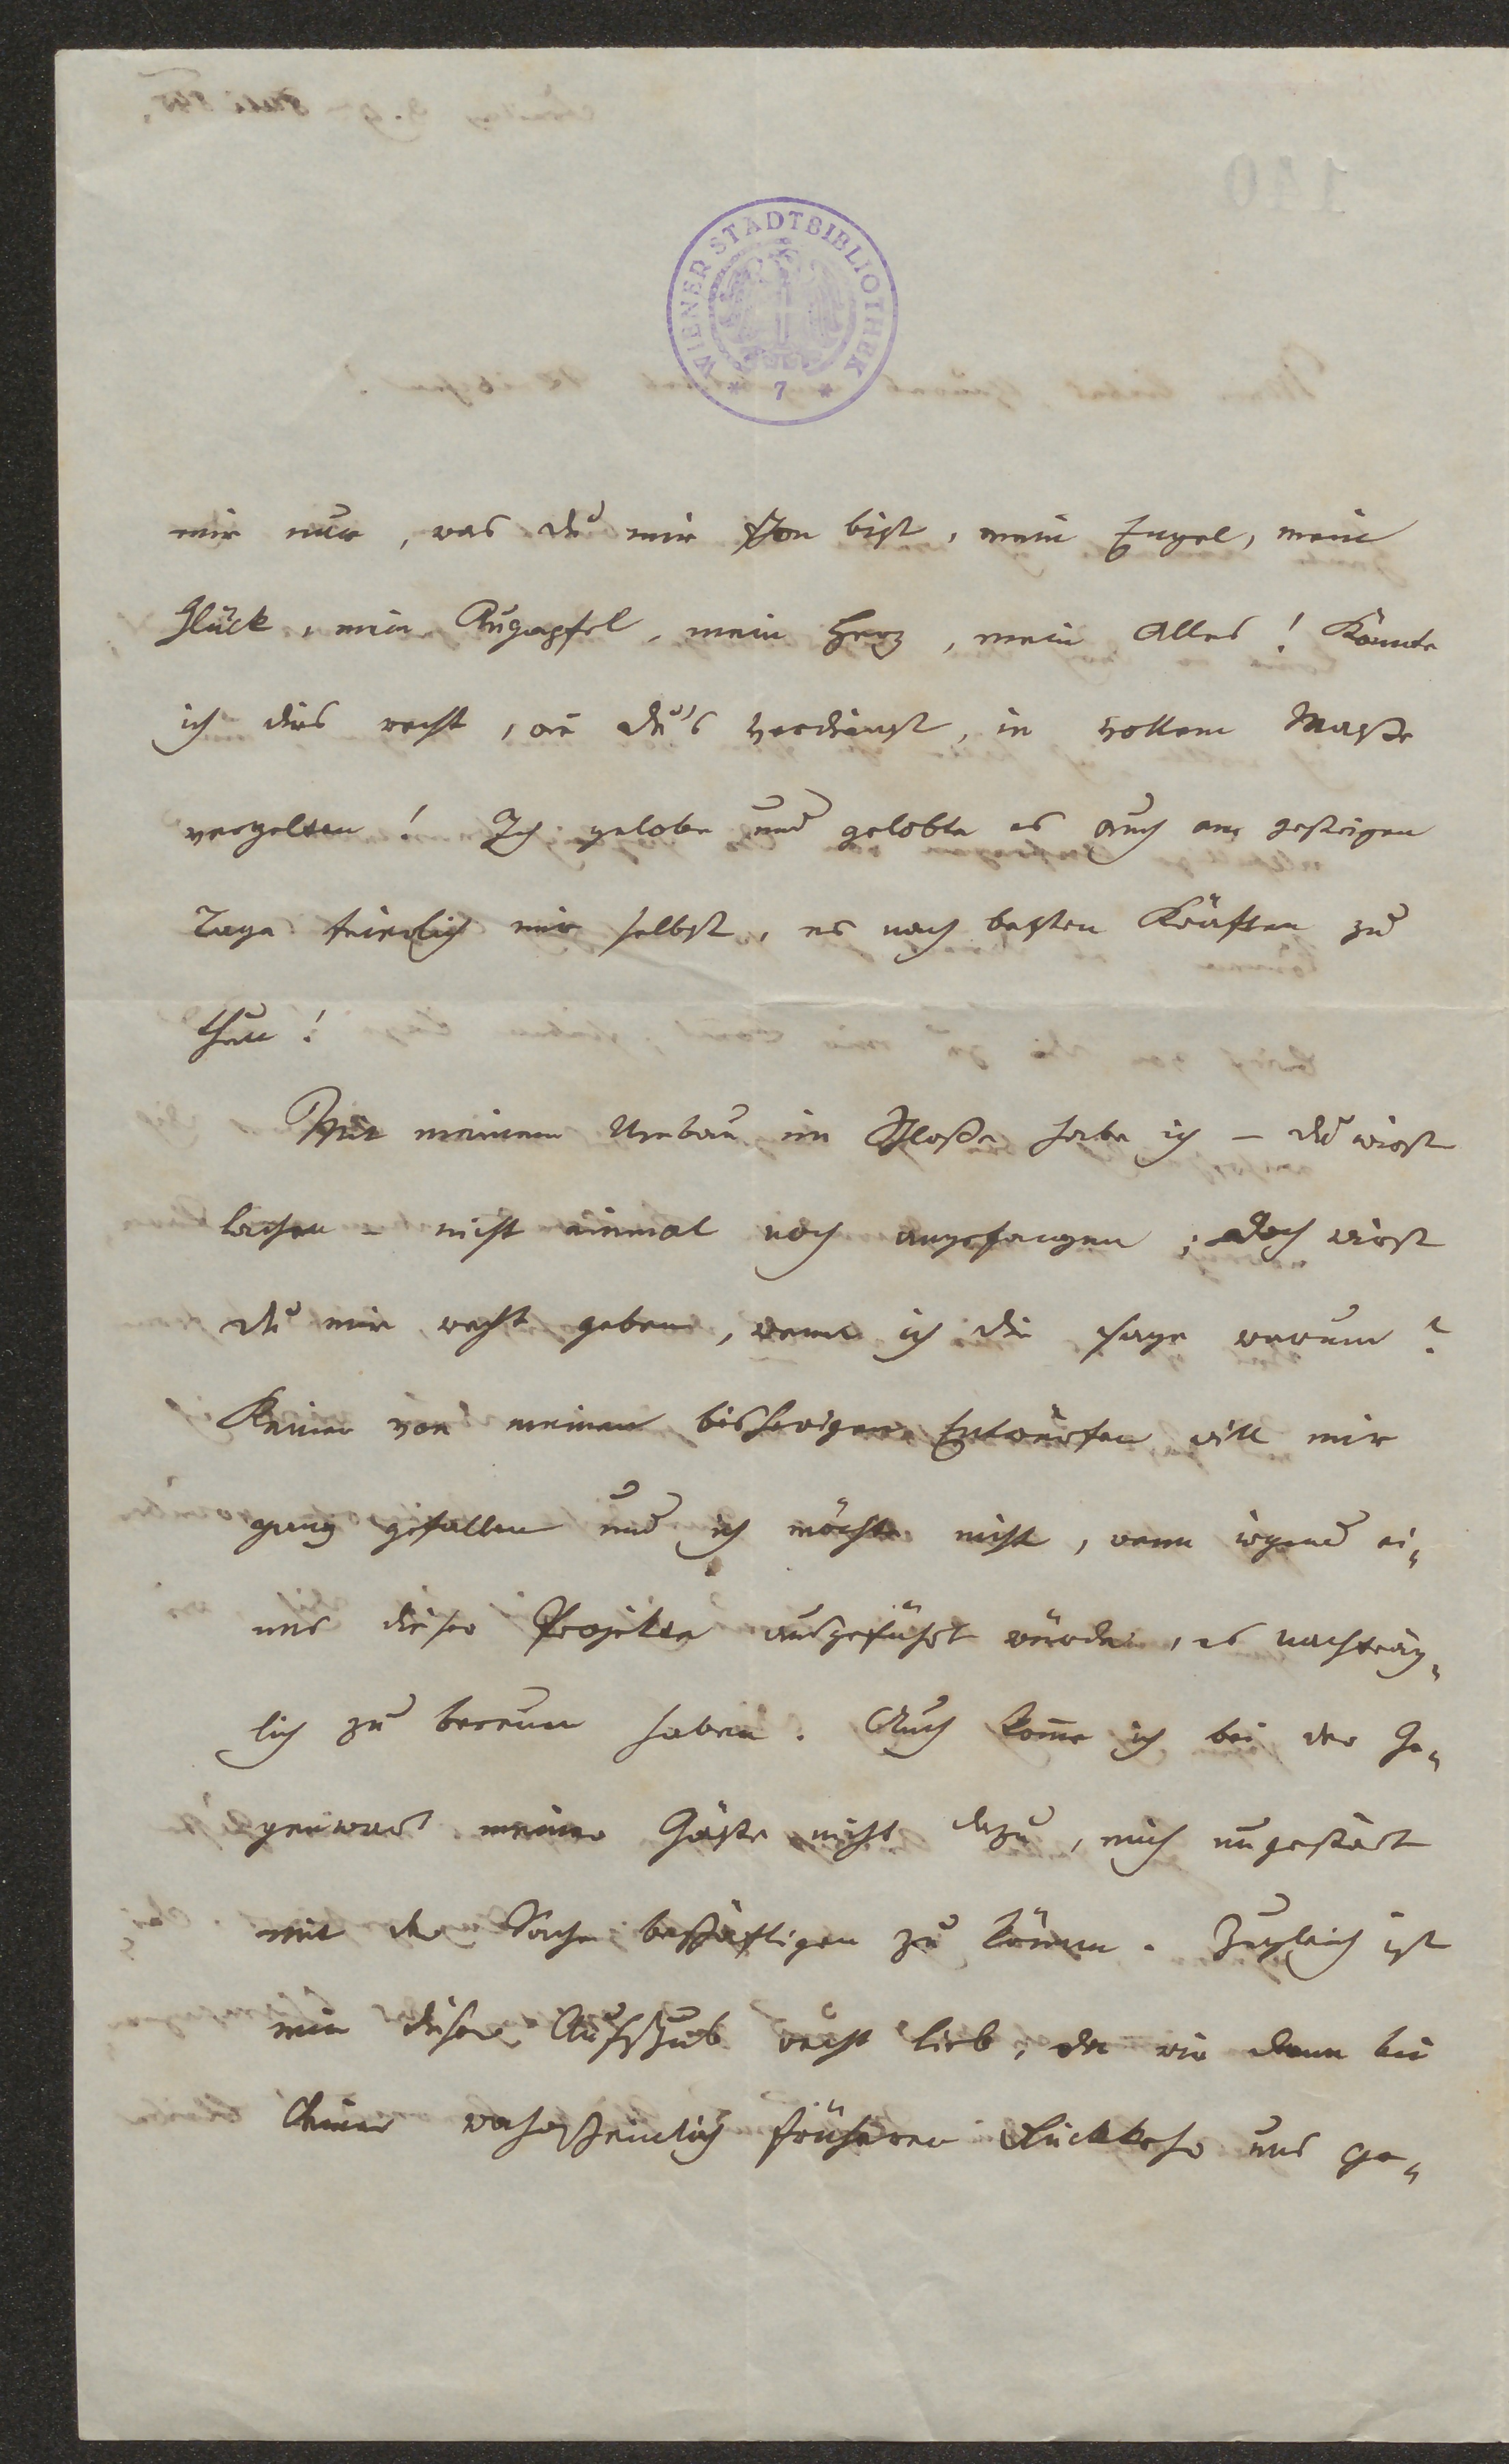 WIENER STADTBIBLIOTHEK
* 7 *
mir nur, was du mir schon bist, mein Engel, mein
Glück, mein Augapfel, mein Herz, mein Alles! Könnte
ich dies recht, wie du's verdienst, in vollem Maße
vergelten! Ich gelobe und gelobte es auch am gestrigen
Tage feierlich mir selbst, es nach besten Kräften zu
thun!
Mit meinem Umbau im Schloße habe ich – du wirst
lachen – nicht einmal noch angefangen; doch wirst
du mir recht geben, wenn ich dir sage warum?
Keiner von meinen bisherigen Entwürfen will mir
ganz gefallen und ich möchte nicht, wenn irgend ei-
nes dieser Projekte ausgeführt würde, es nachträg-
lich zu bereuen haben. Auch kom̄e ich bei der Ge-
genwart meiner Gäste nicht dazu, mich ungestört
mit der Sache beschäftigen zu können. Zugleich ist
mir dieser Aufschub recht lieb, da wir dann bei
deiner wahrscheinlich früheren Rückkehr uns ge-